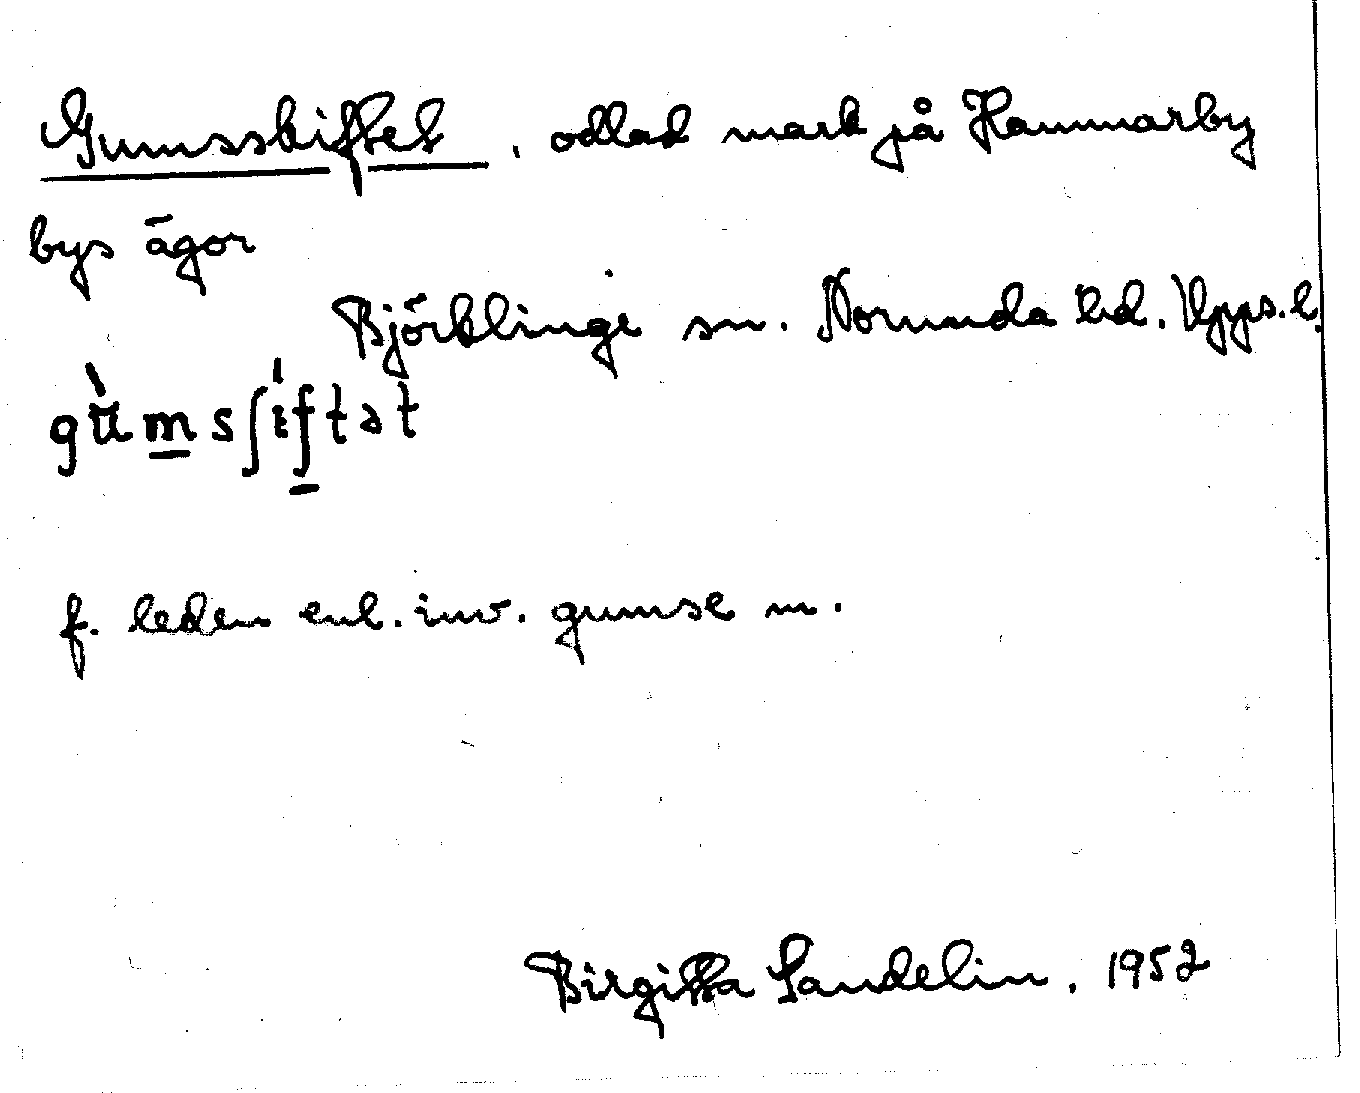 Gumsskiftet, odlad mark på Hammarby
bys ägor
Björklinge sn. Norunda hd. Upps. l.
gùmsʃıftət
f. leden enl. inv. gumse m.
Birgitta Sandelin, 1952